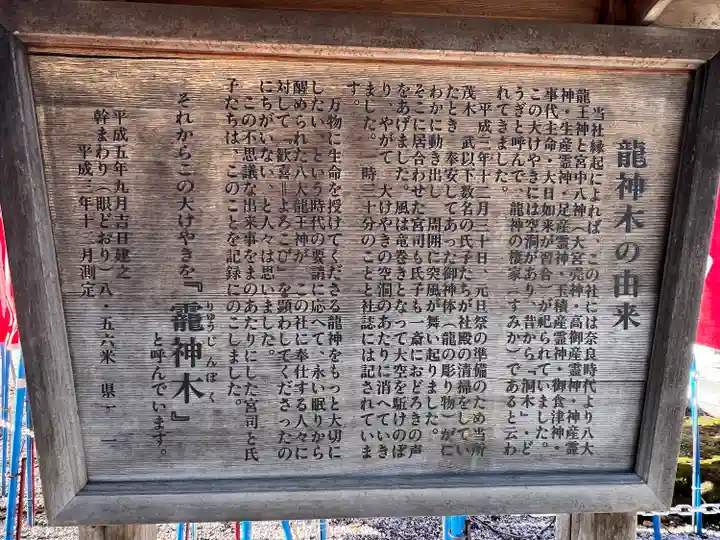 龍神木の由来
当社縁起によれば、この社には奈良時代より八大
龍王神と宮中八神(大宮売神・高御産霊神・神産霊
神・生産霊神・足産霊神・玉積産霊神・御食津神・
事代主命・大日如来が習合)が祀られていました。
この大けやきには空洞があり、昔から『洞木』・ど
うぎと呼んで、龍神の棲家(すみか)であると云わ
れてきました。
平成二年十二月三十日、元旦祭の準備のため当所
茂木 武以下数名の氏子たちが社殿の清掃をしてい
たとき、奉安してあった御神体(龍の彫り物)がに
わかに動き出し、周囲に突風が舞い起りました。
そこに居合わせた宮司も氏子も一斎におどろきの声
をあげました。風は竜巻きとなって大空を駈けのぼ
り、やがて、大けやきの空洞のあたりに消へていき
ました。一時三十分のことと社誌には記されていま
す。
万物に生命を授けてくださる龍神をもっと大切に
したい、という時代の要請に応へて、永い眠りから
醒められた八大龍王神が、この社に奉仕する人々に
対して「歓喜=よろこび」を顕わしてくださったの
にちがいない、と人々は思いました。
この不思議な出来事をまのあたりにした宮司と氏
子たちは、このことを記録にのこしました。
それからこの大けやきを『龗神木』
りゅうじんぼく
と呼んでいます。
平成五年九月吉日建之
幹まわり(眼どおり)八・五六米 県
平成三年十二月測定